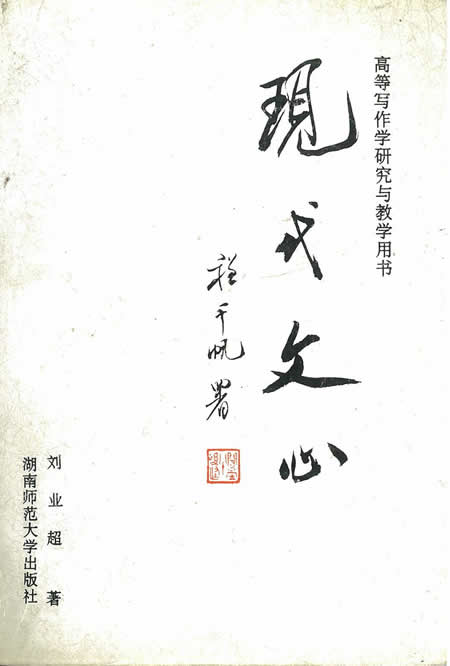 高等写作学研究与教学用书
現代文心
程千帆署
刘业超 著
湖南师范大学出版社